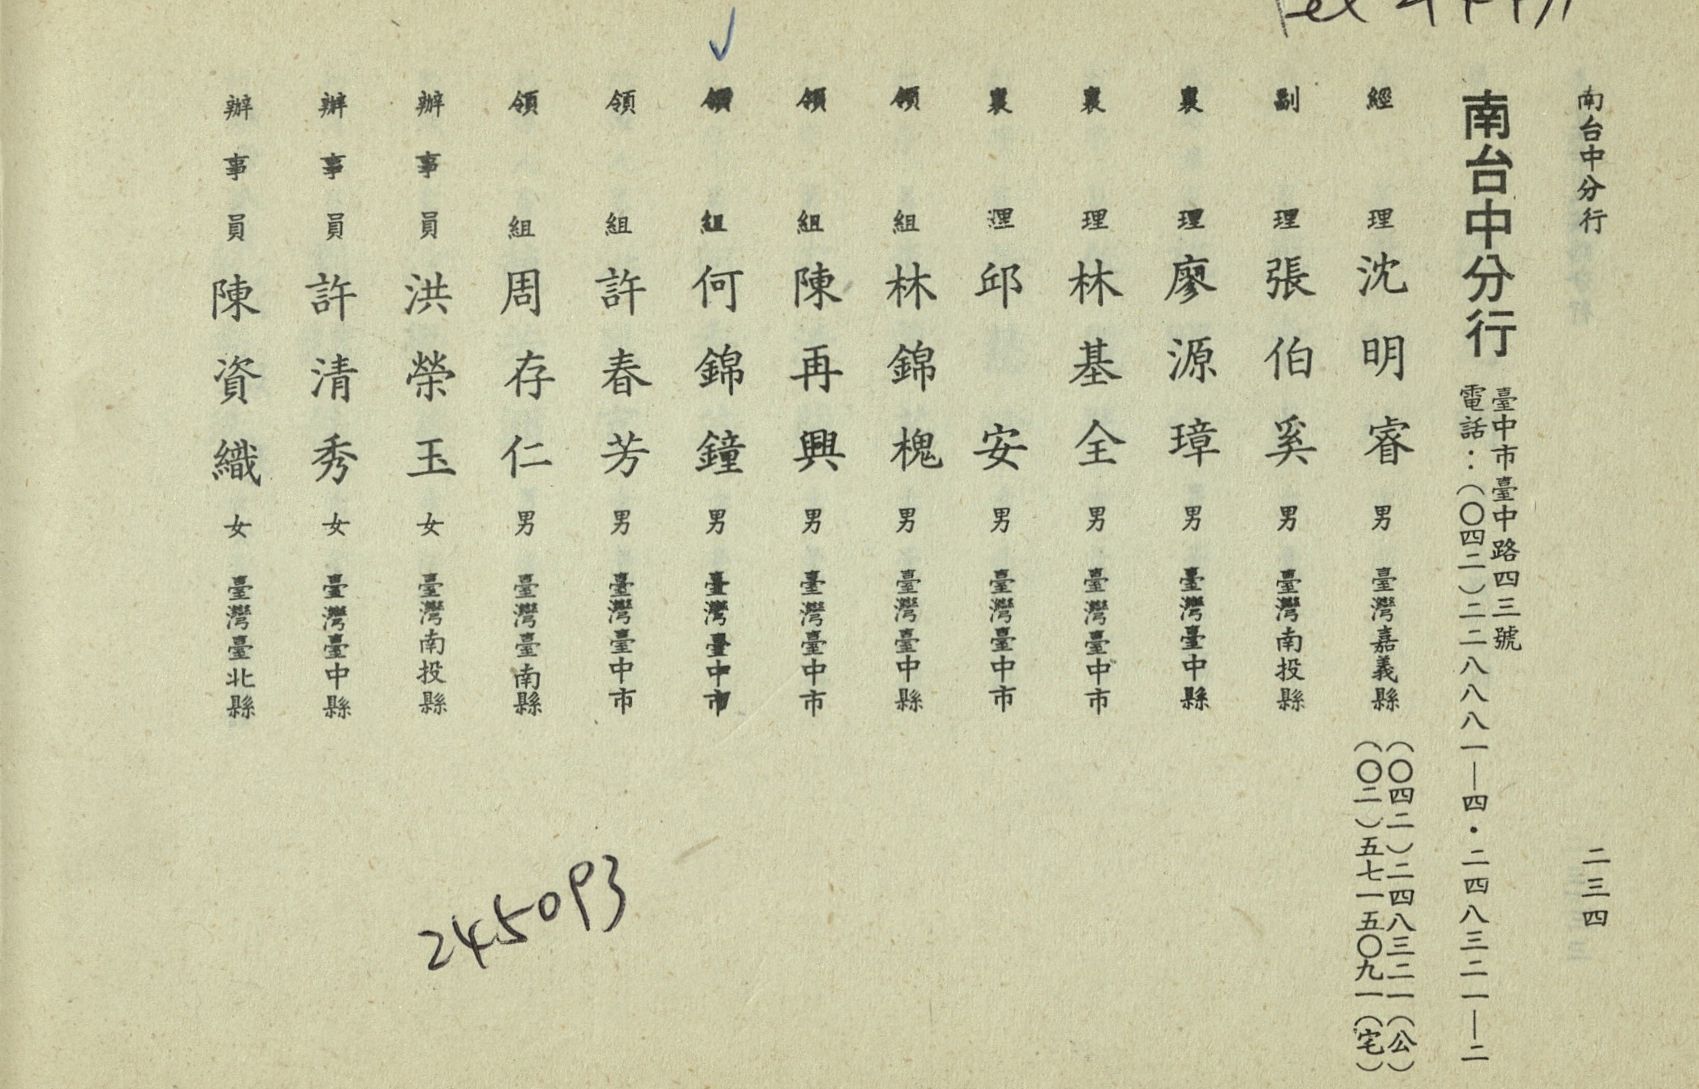 南台中分行
二三四
南台中分行
臺中市臺中路四三號
電話：（〇四二）二二八八八一—四・二四八三二一—二
經理 沈明睿 男 臺灣嘉義縣
（〇四二）二四八三二一（公）
（〇二）五七一五〇九一（宅）
副理 張伯奚 男 臺灣南投縣
襄理 廖源璋 男 臺灣臺中縣
襄理 林基全 男 臺灣臺中市
襄理 邱安 男 臺灣臺中市
領組 林錦槐 男 臺灣臺中縣
領組 陳再興 男 臺灣臺中市
領組 何錦鐘 男 臺灣臺中市
領組 許春芳 男 臺灣臺中市
領組 周存仁 男 臺灣臺南縣
辦事員 洪榮玉 女 臺灣南投縣
辦事員 許清秀 女 臺灣臺中縣
辦事員 陳資織 女 臺灣臺北縣
245093